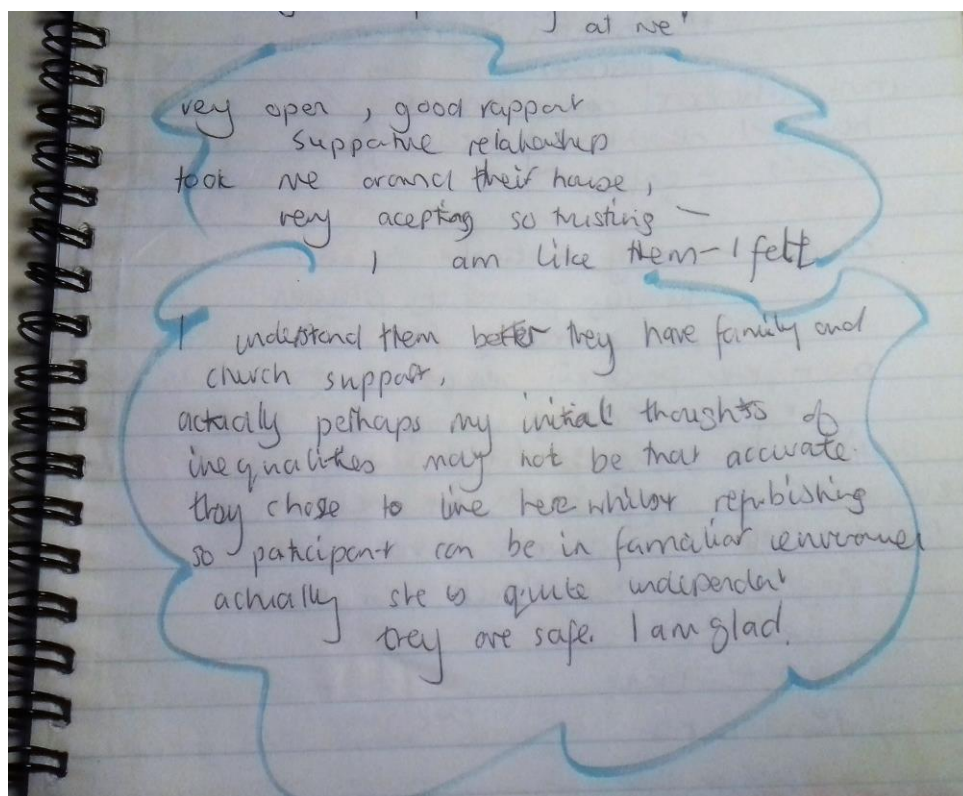 at me'
very open, good rapport
supportive relationship
took me around their house,
very acepting so trusting –
I am like them – I felt
I understand them better they have family and
church support,
actually perhaps my initial thoughts of
inequalities may not be that accurate.
they chose to live here whilst refubishing
so paticipant can be in familiar
actually she is quite independant
they are safe. I am glad.